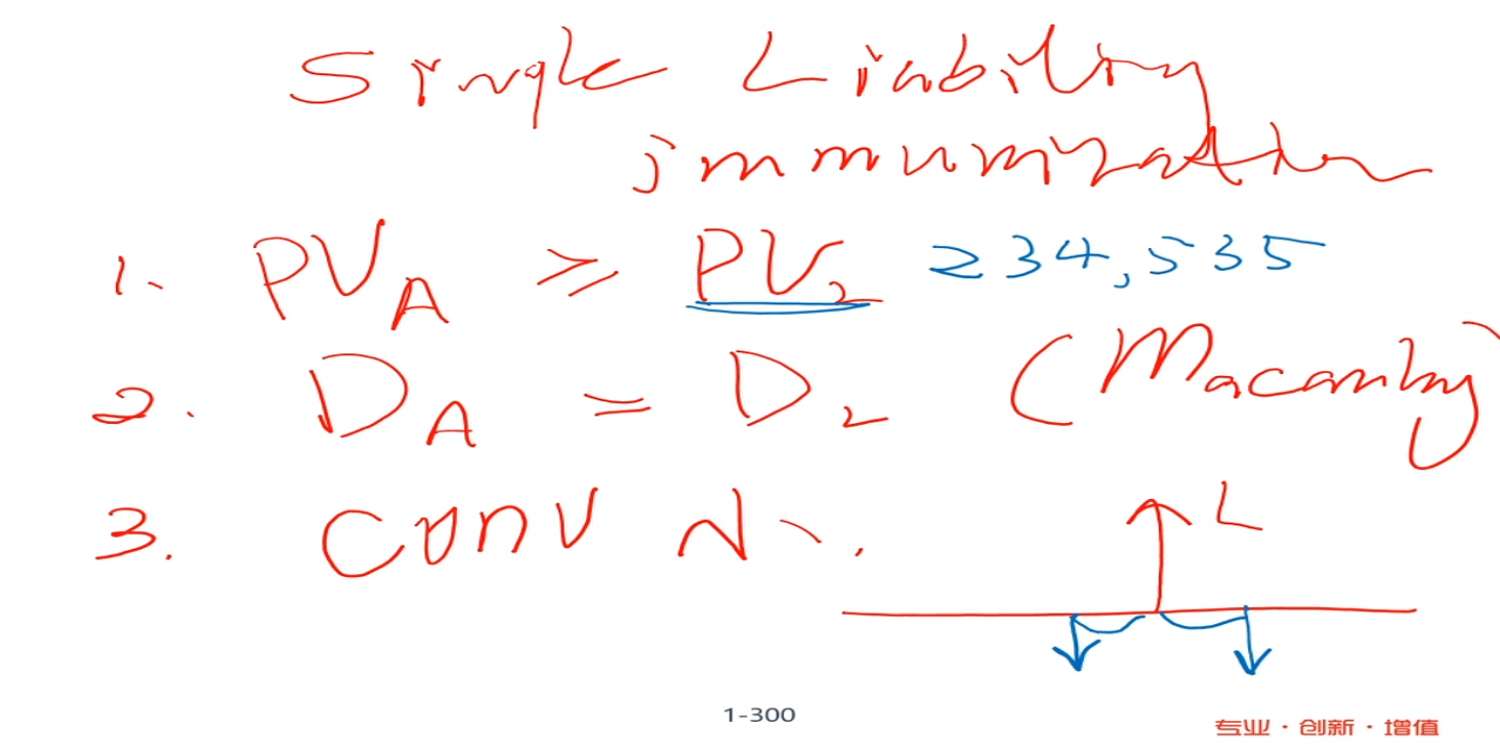 Single Liability
immunization
1. PV_A ≥ PV_L 234,535
2. D_A = D_L (Macaulay)
3. Conv
L
1-300
专业·创新·增值